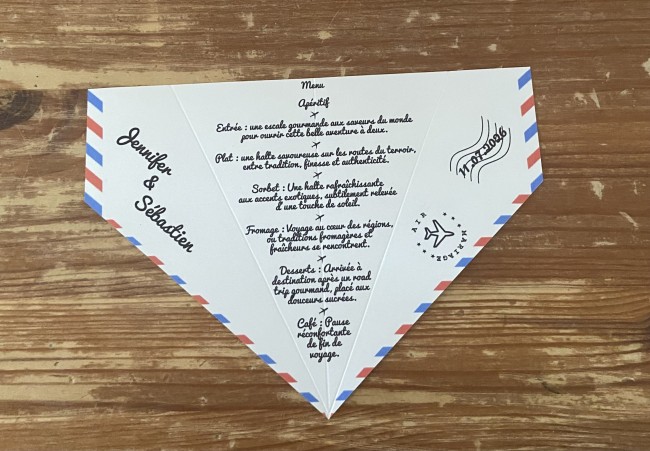 Menu
Apéritif
Entrée : une escale gourmande aux saveurs du monde
pour ouvrir cette belle aventure à deux.
Plat : une halte savoureuse sur les routes du terroir,
entre tradition, finesse et authenticité.
Sorbet : Une halte rafraîchissante
aux accents exotiques, subtilement relevée
d'une touche de soleil.
Fromage : Voyage au cœur des régions,
où traditions fromagères et
fraîcheurs se rencontrent.
Desserts : Arrivée à
destination après un road
trip gourmand, placé aux
douceurs sucrées.
Café : Pause
réconfortante
de fin de
voyage.
Jennifer
&
Sébastien
11.07.2026
AIR
MARIAGE